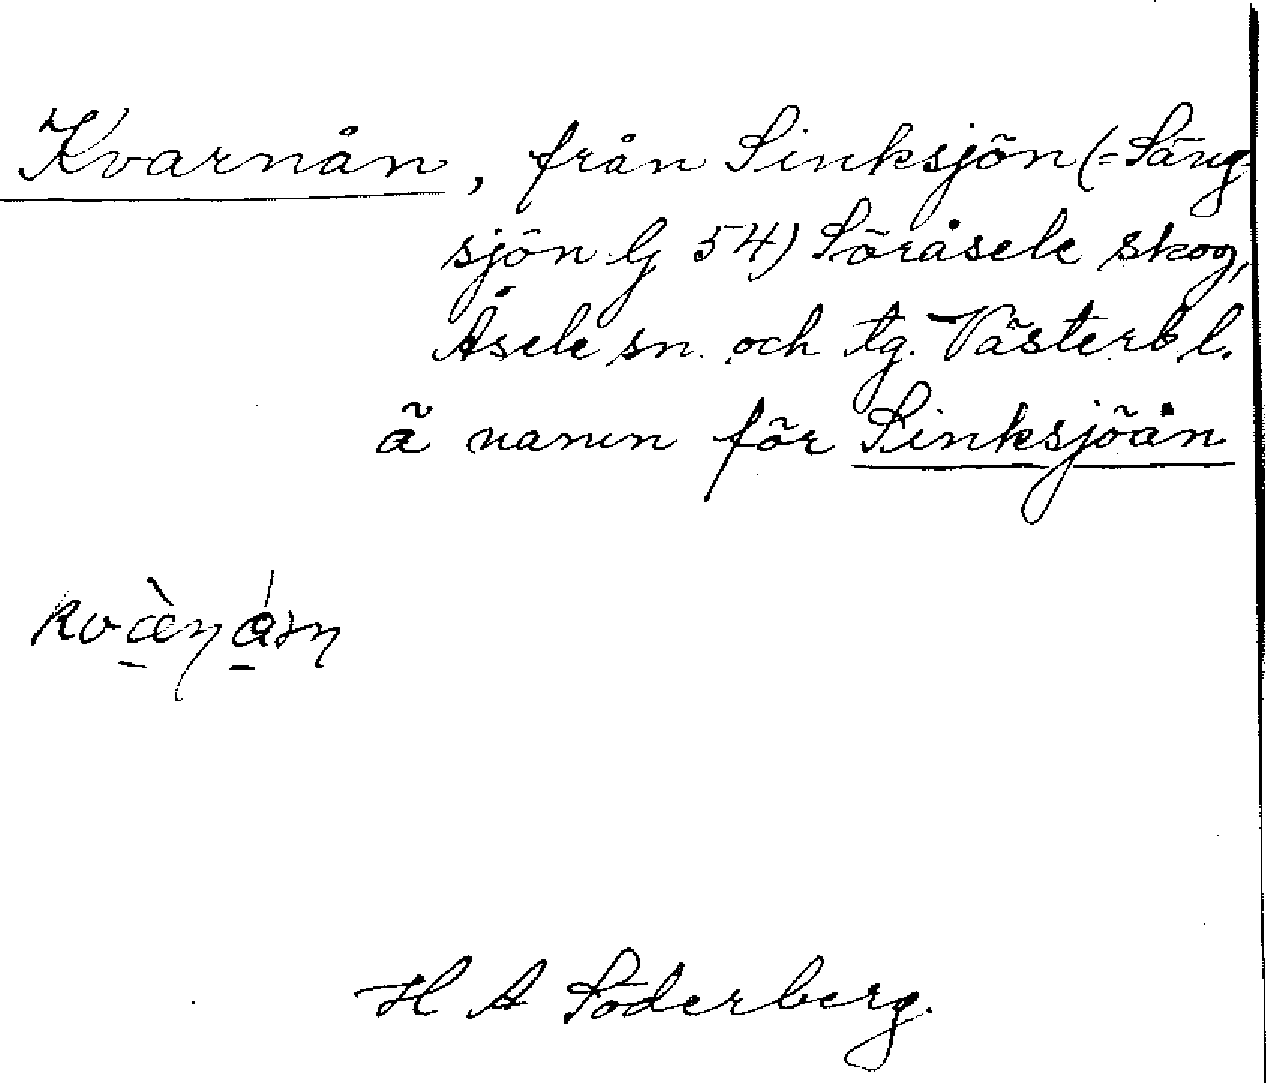 Kvarnån, från Sinksjön (= Säng-
sjön G 54) Söråsele skog,
Åsele sn. och tg. Västerb l.
ä namn för Sinksjöån
H A Söderberg.